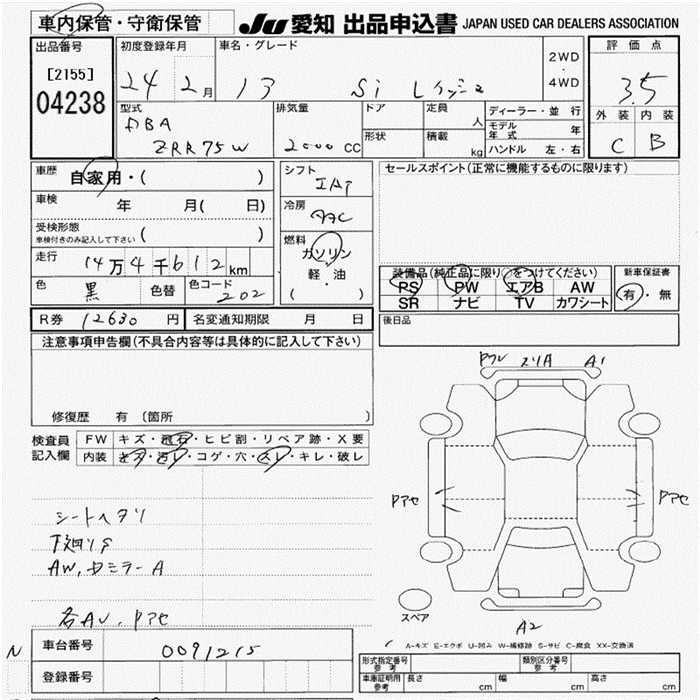 車内保管・守衛保管 JU 愛知 出品申込書 JAPAN USED CAR DEALERS ASSOCIATION
出品番号 初度登録年月 車名・グレード 評価点
[2155] 24 2月 13 Si 2WD ・ 4WD 3.5
04238
型式 DBA ZRR75W 排気量 2000 CC ドア 定員 人 ディーラー・並行 外装 内装
形状 積載 kg モデル年式 年 C B
ハンドル 左・右
車歴 自家用・( ) シフト IAT セールスポイント(正常に機能するものに限ります)
車検 年 月( 日) 冷房 AAC
受検形態 車検付きのみ記入して下さい ( )
燃料 ガソリン 軽・油 ( )
走行 14万4千612km 装備品(純正品に限り○をつけてください) 新車保証書
色 黒 色替 色コード 202 PS PW エアB AW 有・無
SR ナビ TV カワシート
R券 12630 円 名変通知期限 月 日 後日品
注意事項申告欄(不具合内容等は具体的に記入して下さい)
修復歴 有 〔箇所
検査員記入欄 FW キズ・飛石・ヒビ割・リペア跡・X要
内装 キズ・汚レ・コゲ・穴・スレ・キレ・破レ
スリA A1
Pアセ Pアセ
シートヘタリ
下廻りS
AW,ドミラーA
各AU,Pアセ
スペア A2
A-キズ E-エクボ U-凹み W-補修跡 S-サビ C-腐食 XX-交換済
N 車台番号 0091215
登録番号
形式指定番号 参考 類別区分番号 参考
車庫証明用 参考 長さ cm 幅 cm 高さ cm